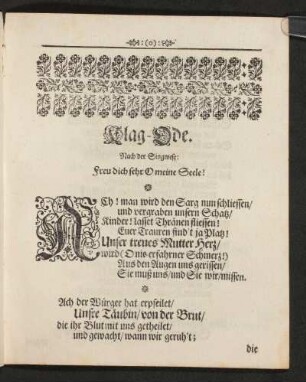 :(o):
Klag-Ode.
Nach der Singweise:
Freu dich sehr O meine Seele!
ACh! man wird den Sarg nun schliessen/
und vergraben unsern Schatz/
Kinder! lasset Thränen fliessen!
Euer Trauren find't ja Platz!
Unser treues Mutter Hertz/
wird (O nie-erfahrner Schmertz!)
Aus den Augen uns gerissen/
Sie muß uns/ und Sie wir/ missen.
Ach der Würger hat erpfeilet/
Unsre Täubin/ von der Brut/
die ihr Blut mit uns getheilet/
und gewacht/ wann wir geruh't;
die